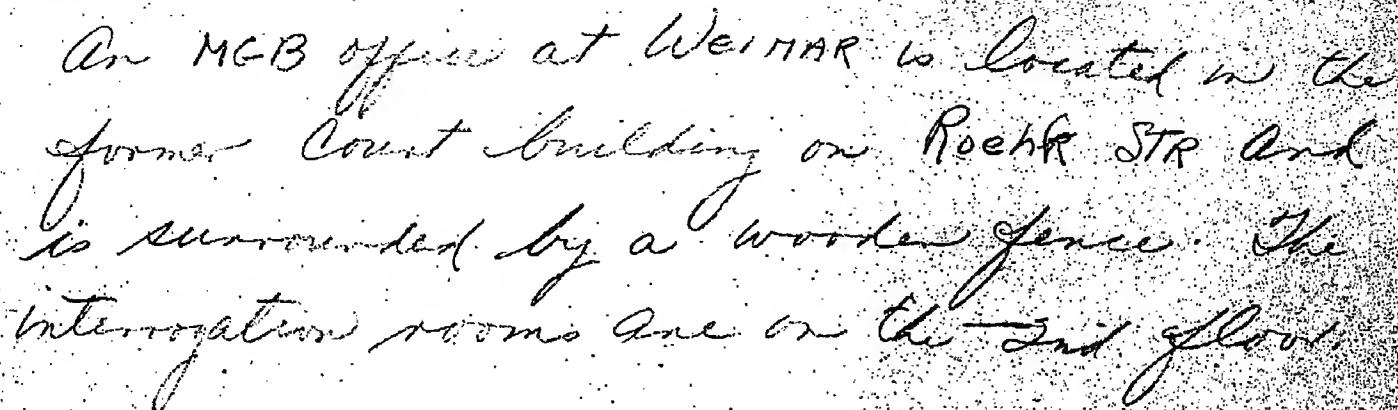 An MGB office at WeiMAR is located in the
former Court building on RoehR STR and
is surrounded by a wooden fence. The
interrogation rooms are on the 2nd floor.